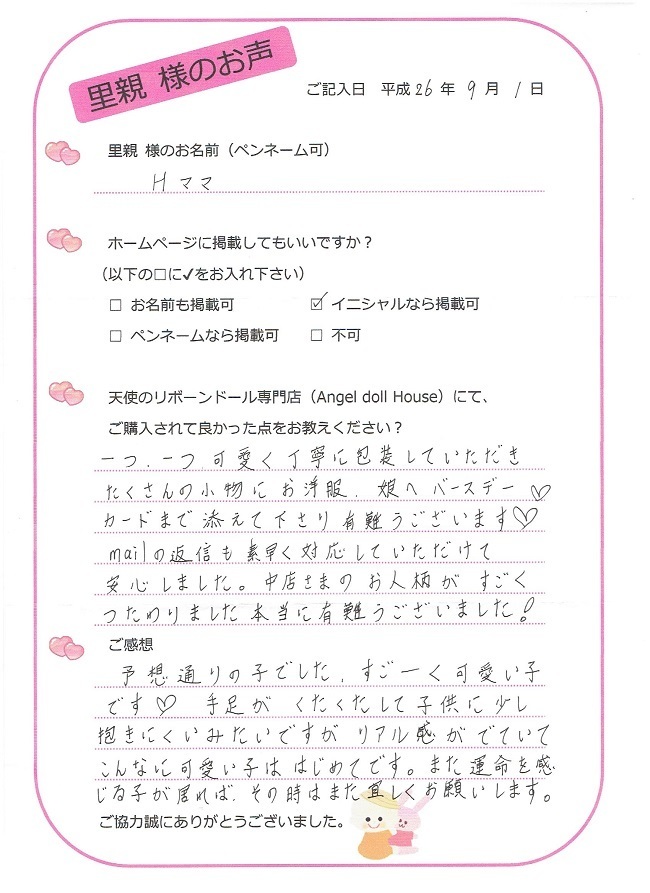 里親 様のお声
ご記入日 平成26年 9月 1日
里親 様のお名前（ペンネーム可）
Hママ
ホームページに掲載してもいいですか？
（以下の□に✓をお入れ下さい）
□ お名前も掲載可 ☑ イニシャルなら掲載可
□ ペンネームなら掲載可 □ 不可
天使のリボーンドール専門店（Angel doll House）にて、
ご購入されて良かった点をお教えください？
一つ、一つ、可愛く丁寧に包装していただき
たくさんの小物にお洋服、娘へバースデー♡
カードまで添えて下さり有難うございます♡
mailの返信も素早く対応していただけて
安心しました。中店さまのお人柄がすごく
つたわりました本当に有難うございました！
ご感想
予想通りの子でした、すごーく可愛い子
です♡ 手足がくたくたして子供に少し
抱きにくいみたいですがリアル感がでていて
こんなに可愛い子ははじめてです。また運命を感
じる子が居れば、その時はまた宜しくお願いします。
ご協力誠にありがとうございました。